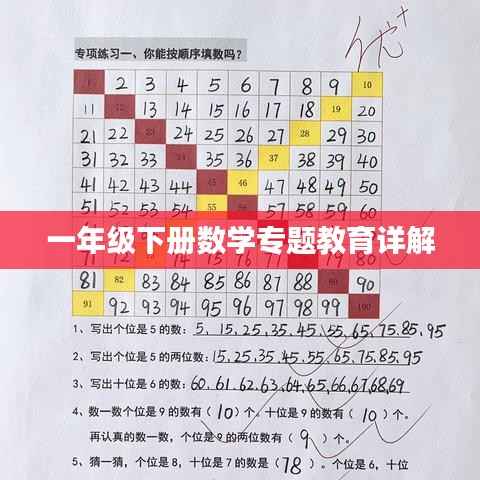 优+
专项练习一、你能按顺序填数吗?
2 3 4 5 6 7 8 9 10
11 12 13 14 15 16 17 18 19 20
21 22 23 24 25 26 27 28 29 30
31 32 33 34 35 36 37 38 39 40
41 42 43 44 45 46 47 48 49 50
51 52 53 54 55 56 57 58 59 60
一年级下册数学专题教育详解
71 72 73 74 75 76 77 79 80
81 82 83 84 85 86 87 88 89 90
91 92 93 94 95 96 97 98 99 100
1、写出个位是5的数:5、15.25.35.45.55.65.75.85.95
2、写出个位是5的两位数:15.25.35.45.55.65.75.85.95
3、写出十位是6的数:60.61.62.63.64.65.66.67.68.69
4、数一数个位是9的数有(10)个。十位是9的数有(10)个。
再认真的数一数,个位是9的两位数有(9)个。
5、猜一猜,个位是8,十位是7的数是(78)。个位是6,十位